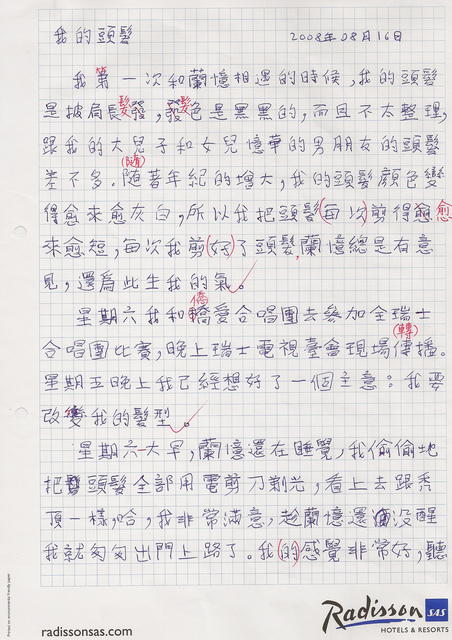 我的頭髮 2008年08月16日
我第一次和蘭憶相遇的時候,我的頭髮
是披局長髮,髮色是黑黑的,而且不太整理,
跟我的大兒子和女兒憶華的男朋友的頭髮
差不多。隨著年紀的增大,我的頭髮顏色變
得愈來愈灰白,所以我把頭髮(每次)剪得愈愈
來愈短,每次我剪(好)了頭髮,蘭憶總是有意
見,還爲此生我的氣。
星期六我和僑愛合唱團去參加全瑞士
(轉)
合唱團比賽,晚上瑞士電視臺會現場傳播。
星期五晚上我已經想好了一個主意:我要
改變我的髮型。
星期六一大早,蘭憶還在睡覺,我偷偷地
把頭髮全部用電剪刀剃光,看上去跟禿
頂一樣,哈,我非常滿意,趁蘭憶還沒醒
我就匆匆出門上路了。我(的)感覺非常好,聽
Printed on environmentally friendly paper
radissonsas.com
Radisson SAS
HOTELS & RESORTS